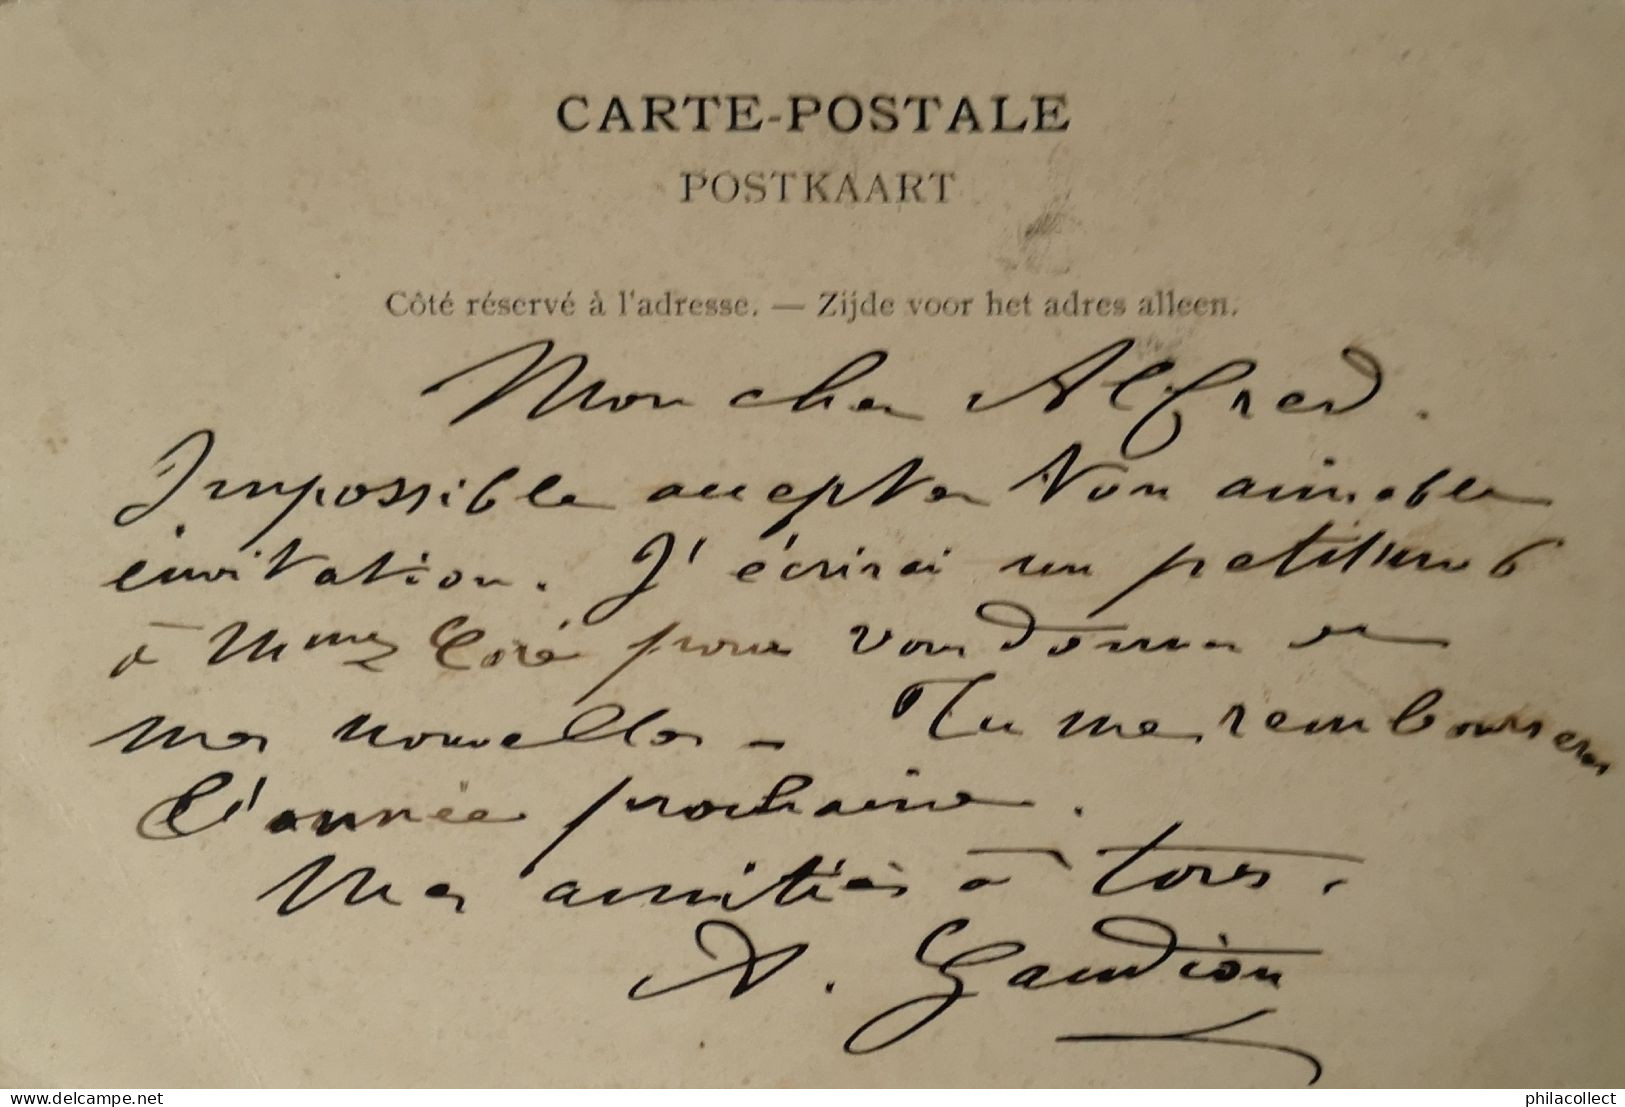 CARTE-POSTALE
POSTKAART
Côté réservé à l'adresse. — Zijde voor het adres alleen.
Mon cher Alfred.
Impossible accepter ton aimable
invitation. J'écrirai un petit
à pour vous donner de
mes nouvelles - Tu me rembourseras
l'année prochaine.
Mes amitiés à tous.
A. Gaudion
delcampe.net
philacollect